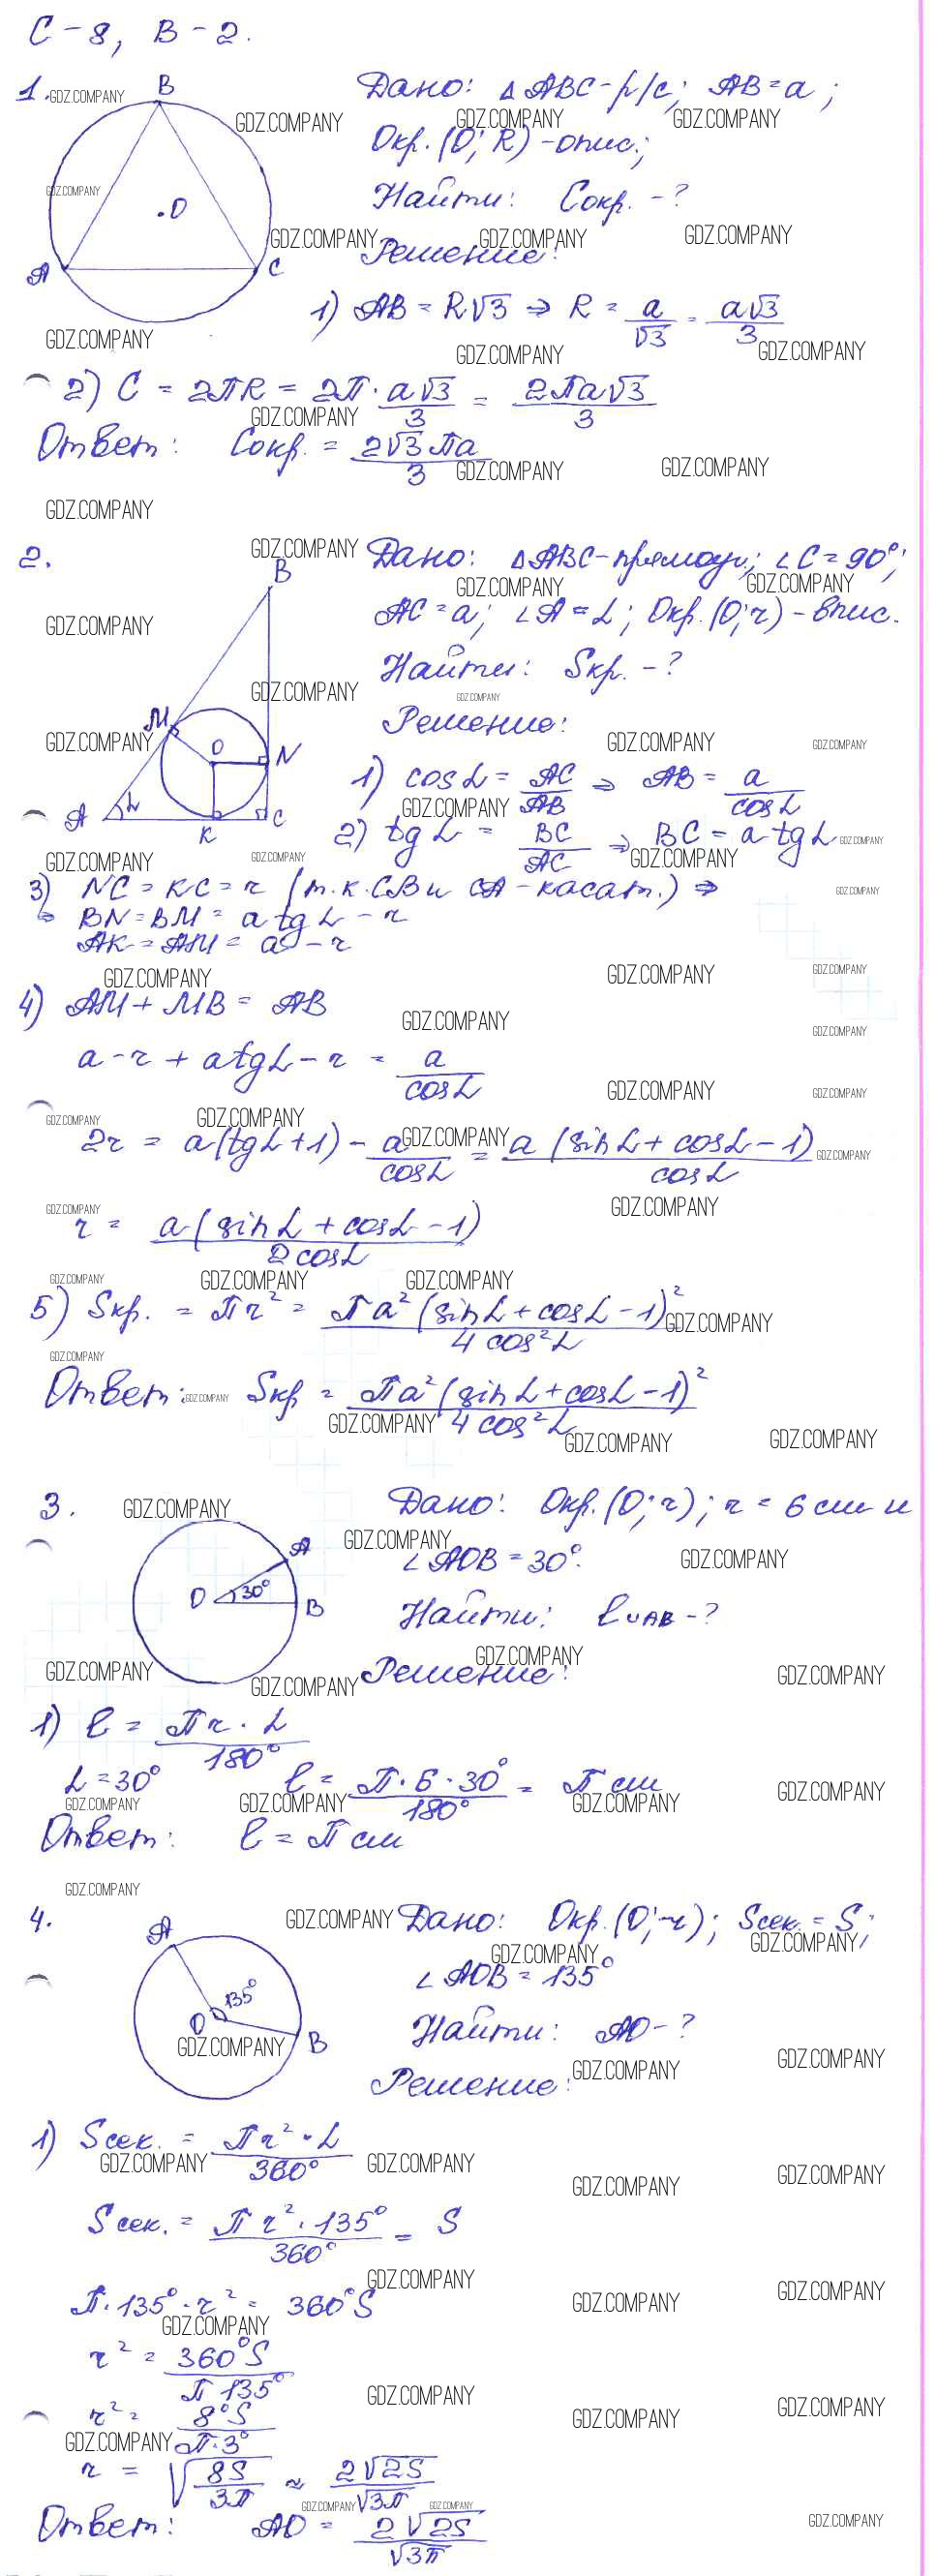 С-8, В-2.
1.
Дано: △ABC-р/с; AB=a;
Окр.(O; R)-опис;
Найти: Cокр. -?
Решение:
1) AB = R√3 ⇒ R = a/√3 = a√3/3
2) C = 2πR = 2π · a√3/3 = 2πa√3/3
Ответ: Cокр. = 2√3πa/3
B
O
A
C
2.
Дано: △ABC-прямоуг.; ∠C=90°;
AC=a; ∠A=α; Окр.(O; r)-впис.
Найти: Sкр. -?
Решение:
B
M
O
N
A
α
K
C
1) cosα = AC/AB ⇒ AB = a/cosα
2) tgα = BC/AC ⇒ BC = a tgα
3) NC = KC = r (т.к. CB и CA - касат.) ⇒
⇒ BN=BM= a tgα - r
AK=AM= a - r
4) AM + MB = AB
a - r + a tgα - r = a/cosα
2r = a(tgα+1) - a/cosα = a(sinα+cosα-1)/cosα
r = a(sinα+cosα-1)/2cosα
5) Sкр. = πr² = πa²(sinα+cosα-1)²/4cos²α
Ответ: Sкр = πa²(sinα+cosα-1)²/4cos²α
3.
Дано: Окр.(O; r); r = 6 см и
∠AOB = 30°.
Найти: l∪AB -?
Решение:
A
O
30°
B
1) l = πr·α/180°
α = 30° l = π·6·30°/180° = π см
Ответ: l = π см
4.
Дано: Окр.(O; r); Sсек. = S;
∠AOB = 135°
Найти: AO -?
Решение:
A
135°
O
B
1) Sсек. = πr²·α/360°
Sсек. = πr²·135°/360° = S
π·135°·r² = 360°S
r² = 360°S/π135°
r² = 8°S/π·3°
r = √8S/3π ≈ 2√2S/√3π
Ответ: AO = 2√2S/√3π
GDZ.COMPANY